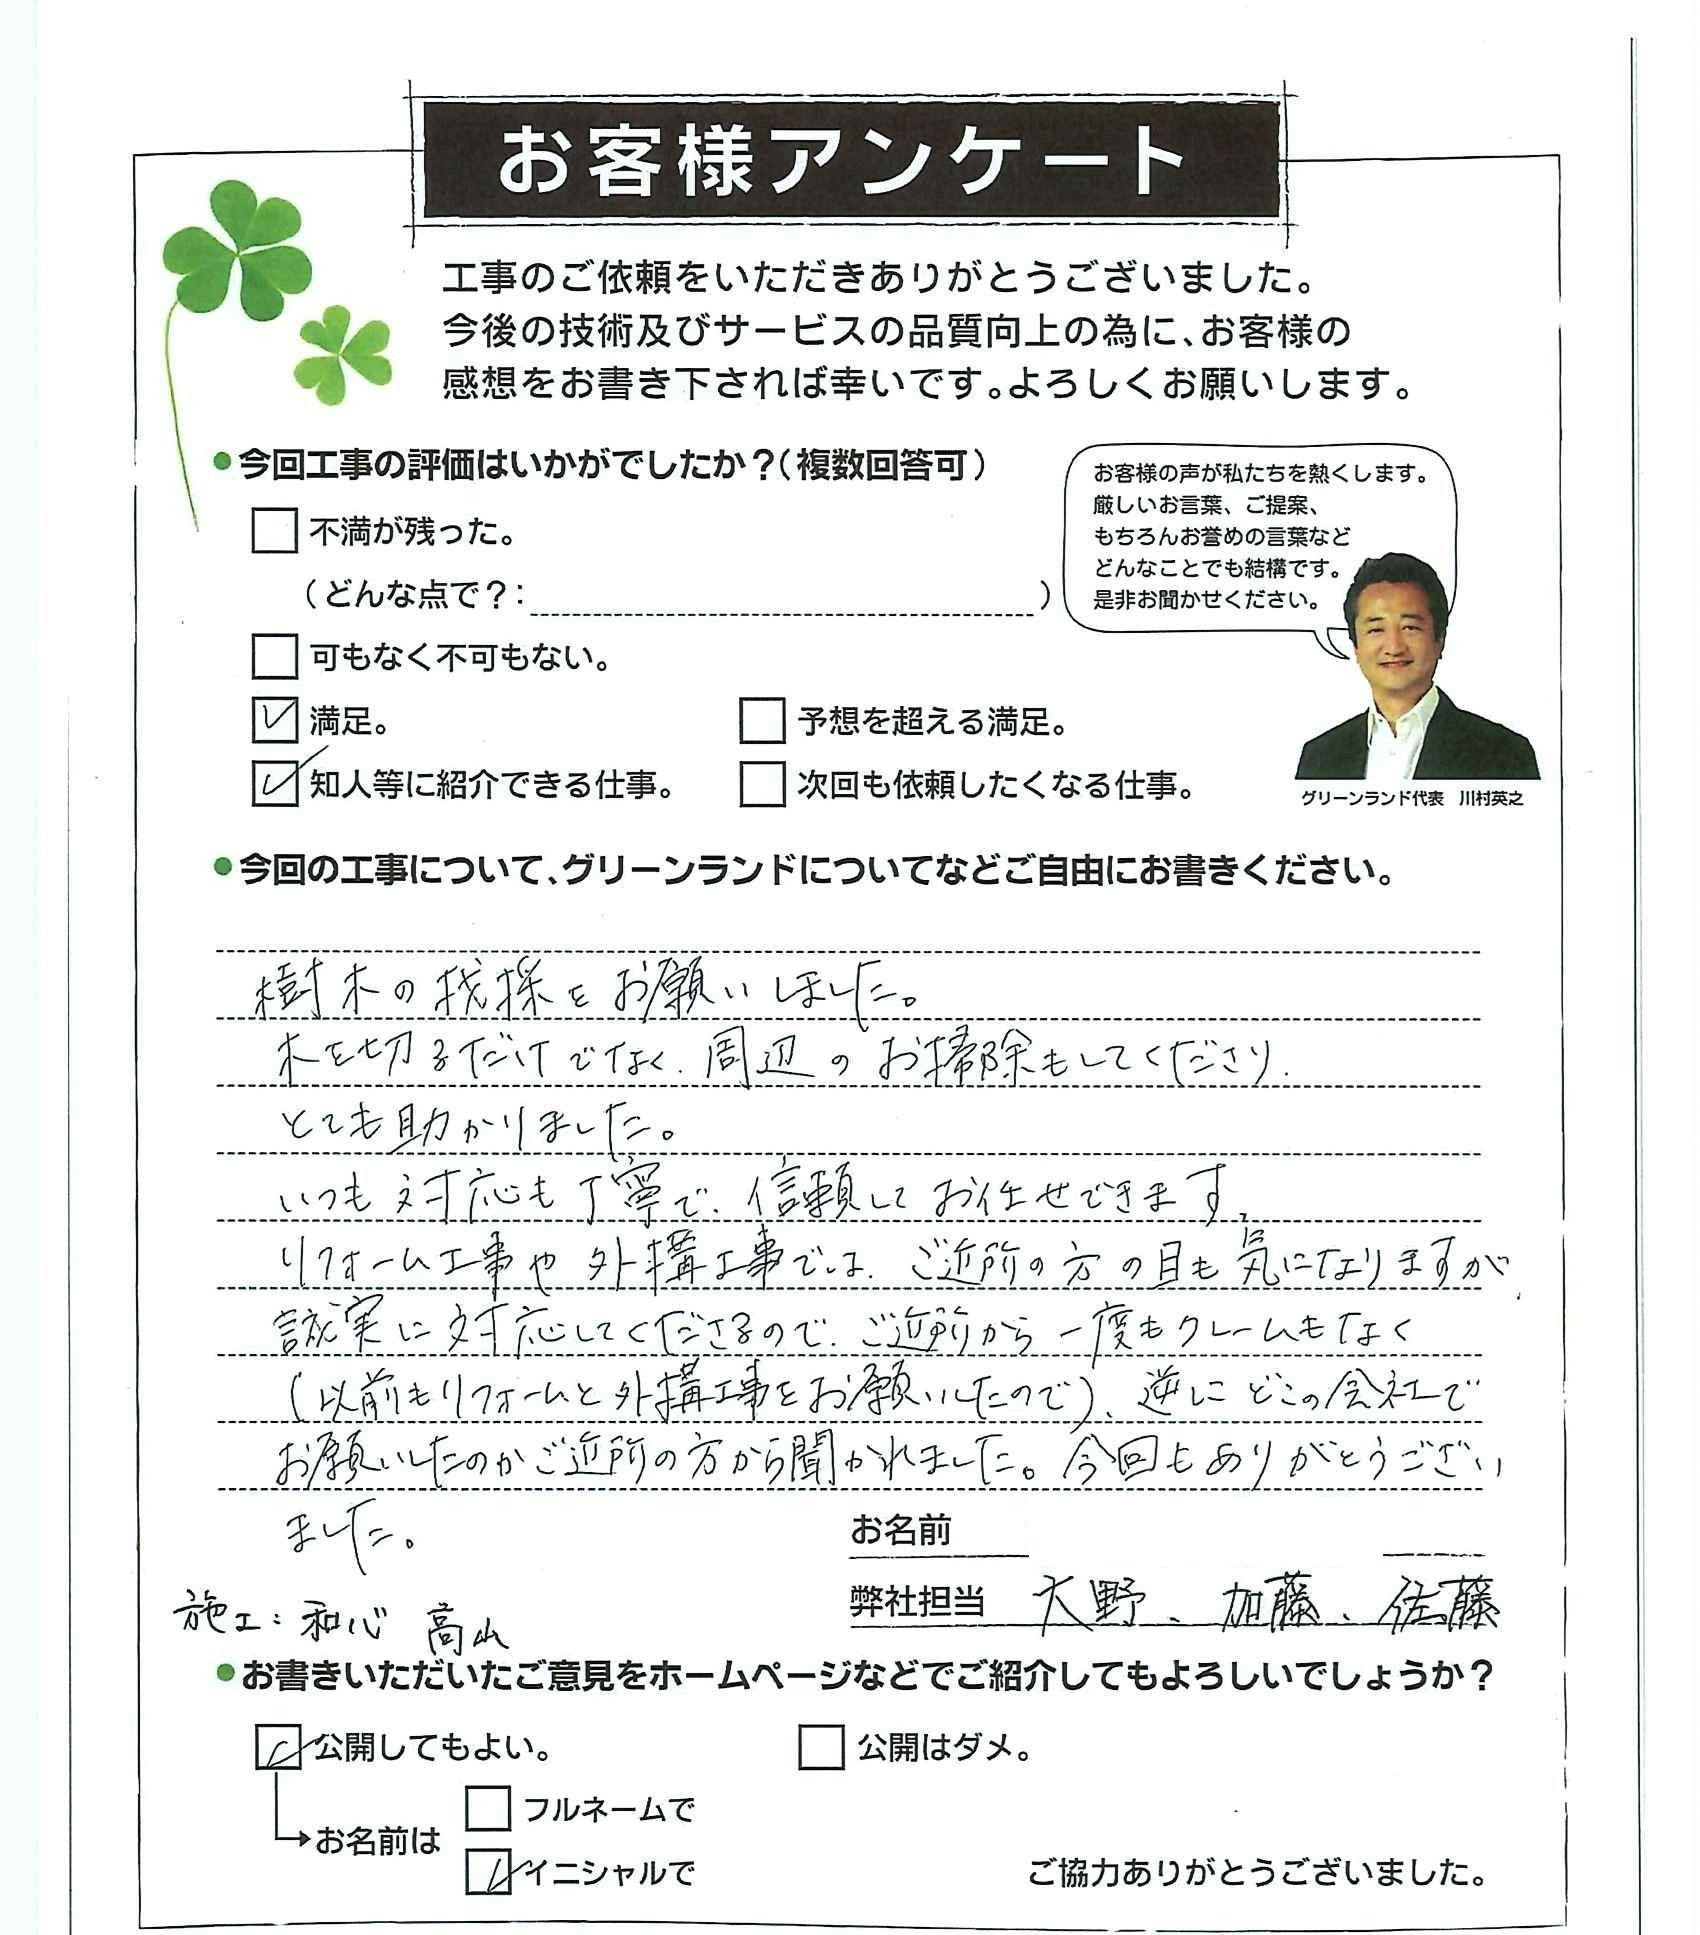 お客様アンケート
工事のご依頼をいただきありがとうございました。
今後の技術及びサービスの品質向上の為に、お客様の
感想をお書き下されば幸いです。よろしくお願いします。
●今回工事の評価はいかがでしたか？（複数回答可）
不満が残った。
（どんな点で？：　）
可もなく不可もない。
満足。
予想を超える満足。
知人等に紹介できる仕事。
次回も依頼したくなる仕事。
お客様の声が私たちを熱くします。
厳しいお言葉、ご提案、
もちろんお誉めの言葉など
どんなことでも結構です。
是非お聞かせください。
グリーンランド代表　川村英之
●今回の工事について、グリーンランドについてなどご自由にお書きください。
樹木の伐採をお願いしました。
木を切るだけでなく、周辺のお掃除もしてくださり、
とても助かりました。
いつも対応も丁寧で、信頼してお任せできます。
リフォーム工事や外構工事では、ご近所の方の目も気になりますが、
誠実に対応してくださるので、ご近所から一度もクレームもなく
（以前もリフォームと外構工事をお願いしたので）、逆にどこの会社で
お願いしたのかご近所の方から聞かれました。今回もありがとうござい
ました。
お名前
弊社担当　大野、加藤、佐藤
施工：和心　高山
●お書きいただいたご意見をホームページなどでご紹介してもよろしいでしょうか？
公開してもよい。
公開はダメ。
お名前は
フルネームで
イニシャルで
ご協力ありがとうございました。